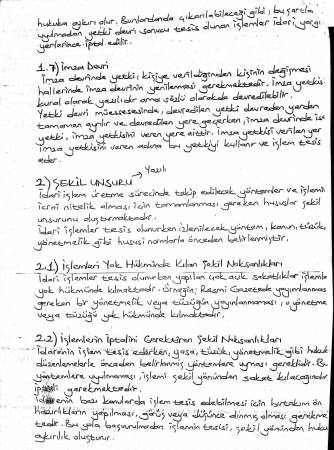 hukuka aykırı olur. Bunlardanda çıkarılabileceği gibi, bu şartla
uyulmadan yetki devri sonucu tesis olunan işlemler idari yargı
yerlerince iptal edilir.
1.7) İmza Devri
İmza devrinde yetki, kişiye verildiğinden kişinin değişmesi
hallerinde imza devrinin yenilenmesi gerekmektedir. İmza yetkisi
kural olarak yazılıdır ama sözlü olarakda devredilebilir.
Yetki devri müessesesinde, devredilen yetki devreden yerden
tamamen ayrılır ve devredilen yere geçerken, imza devrinde ise
yetki, imza yetkisini veren yere aittir. İmza yetkisi verilen yer
imza yetkisini veren adına bu yetkiyi kullanır ve işlem tesis
eder.
Yazılı
2) ŞEKİL UNSURU
İdari işlem üretme sürecinde takip edilecek yöntemler ve işlemi
icrai nitelik alması için tamamlanması gereken hususlar şekil
unsurunu oluşturmaktadır.
İdari işlemler tesis olunurken izlenilecek yöntem, kanun, tüzük,
yönetmelik gibi hususi normlarla önceden belirlenmiştir.
2.1) İşlemleri Yok Hükmünde Kılan Şekil Noksanlıkları
İdari işlemler tesis olunurken yapılan çok açık sakatlıklar işlemle
yok hükmünde kılmaktadır. Örneğin; Resmi Gazetede yayınlanması
gereken bir yönetmelik veya tüzüğün yayınlanmaması, o yönetme
veya tüzüğü yok hükmünde kılmaktadır.
2.2) İşlemlerin İptalini Gerektiren Şekil Noksanlıkları
İdarenin işlem tesis ederken, yasa, tüzük, yönetmelik gibi hukuk
düzenlemelerle önceden belirtilmiş yöntemlere uyması gereklidir. Bu
yöntemlere uyulmaması, işlemi şekil yönünden sakat kılacağından
iptali gerekmektedir.
İdarenin bazı konularda işlem tesis edebilmesi için birtakım ön
hazırlıkların yapılması, görüş veya düşünce alınmış olması gerekme
tedir. Bu yola başvurulmadan işlemin tesisi, şekil yönünden huku
aykırılık oluşturur.